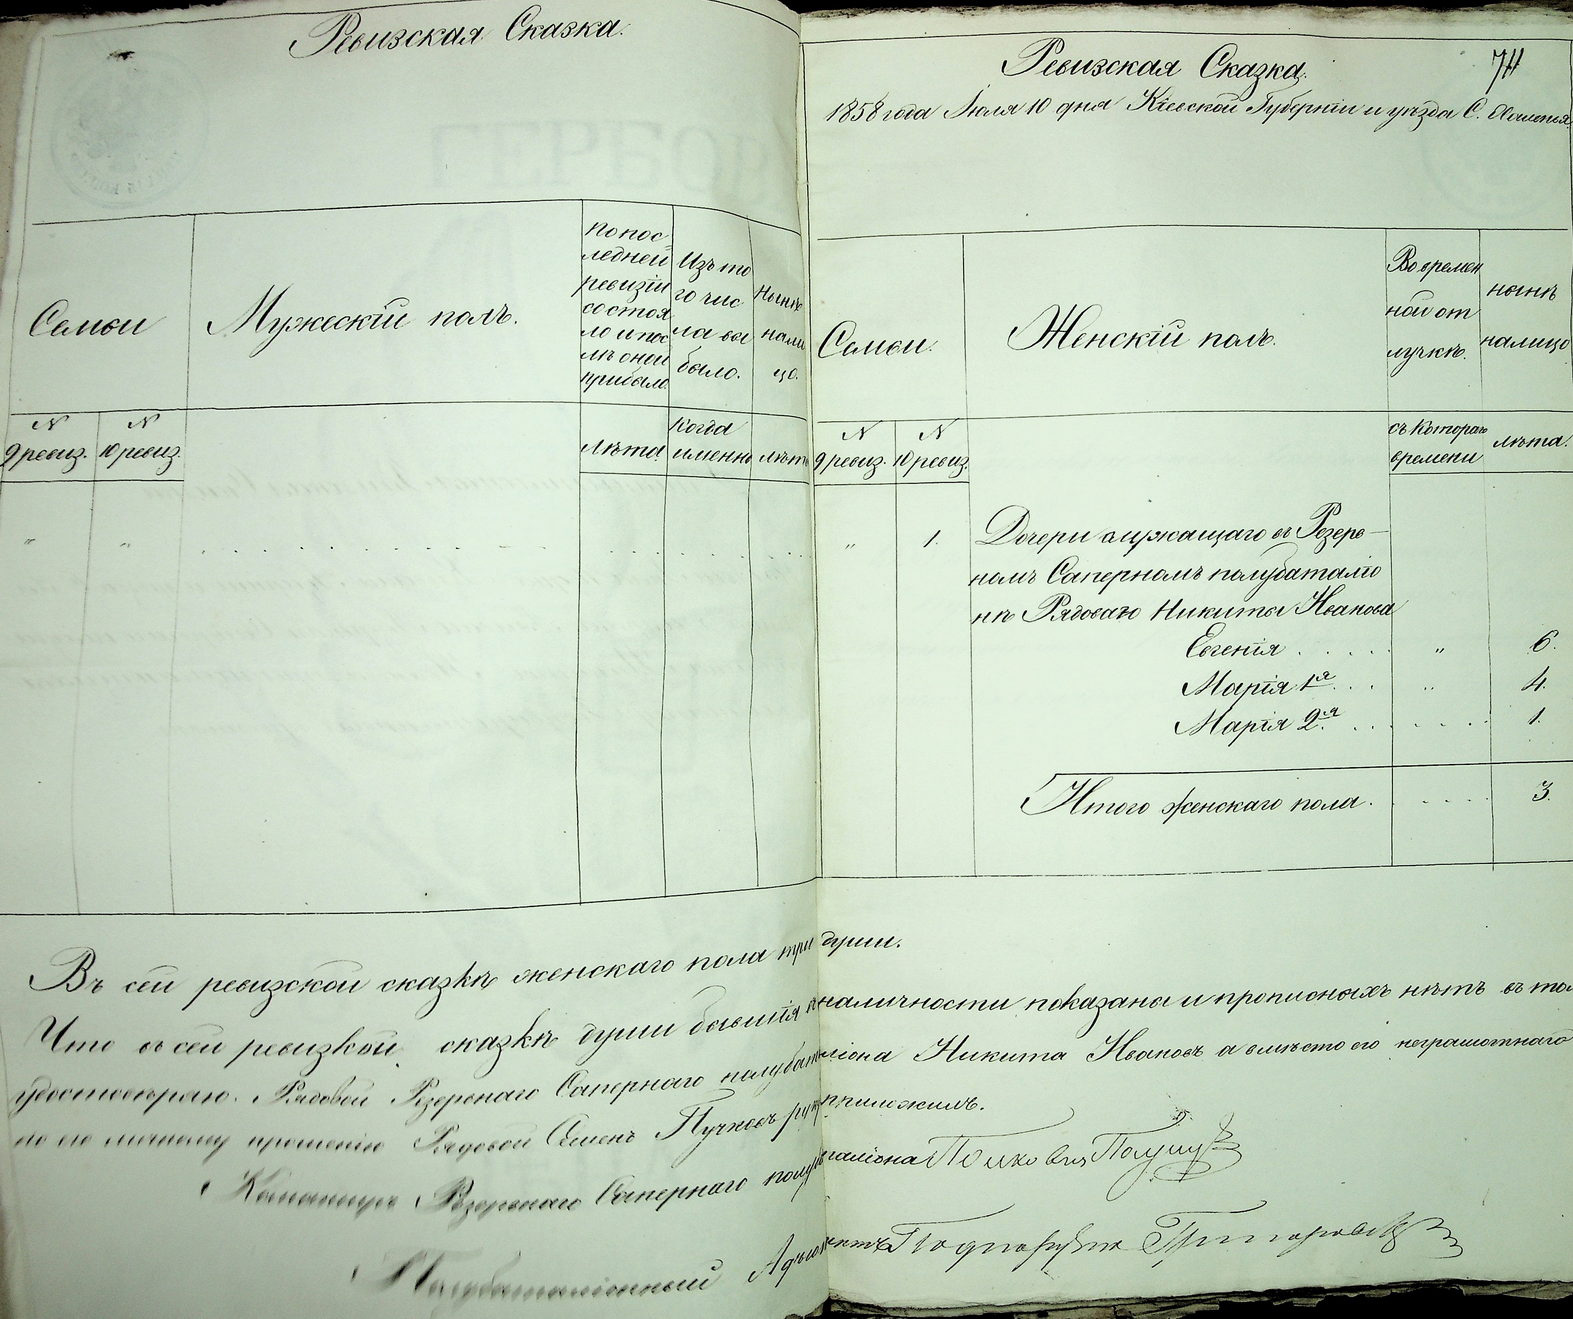 Ревизская Сказка.
Семьи
Мужескій полъ.
по пос-
ледней
ревизіи
состоя
ло и пос
лѣ оной
прибыло.
Изъ то
го чис
ла вы
было.
Нынѣ
нали
цо.
N
9 ревиз.
N
10 ревиз.
Лѣта.
Когда
именно
лѣта
Ревизская Сказка.
1858 года Іюля 10 дня Кіевской Губерніи и уѣзда С.
Семьи.
Женскій полъ.
Во времен
ной от
лучкѣ.
нынѣ
налицо
N
9 ревиз.
N
10 ревиз.
съ Котораго
времени
лѣта.
" "
" 1. Дочери служащаго въ Резерв-
номъ Саперномъ полубаталіо
нѣ Рядоваго Никиты Иванова
Евгенія . . . . . " 6.
Марія 1я . . . " 4.
Марія 2я . . . . . . . 1.
Итого женскаго пола. . . . . 3.
Въ сей ревизской сказкѣ женскаго пола три души.
Что въ сей ревизкой сказкѣ души бывшія въ наличности показаны и прописныхъ нѣтъ въ том
удостовѣряю. Рядовой Резервнаго Сапернаго полубаталіона Никита Ивановъ а вмѣсто его неграмотнаго
по его личному прошенію Рядовой Семенъ Пучковъ руку приложилъ.
Командиръ Резервнаго Сапернаго полубаталіона Полковникъ
Полубаталіонный Адъютантъ Подпоручикъ